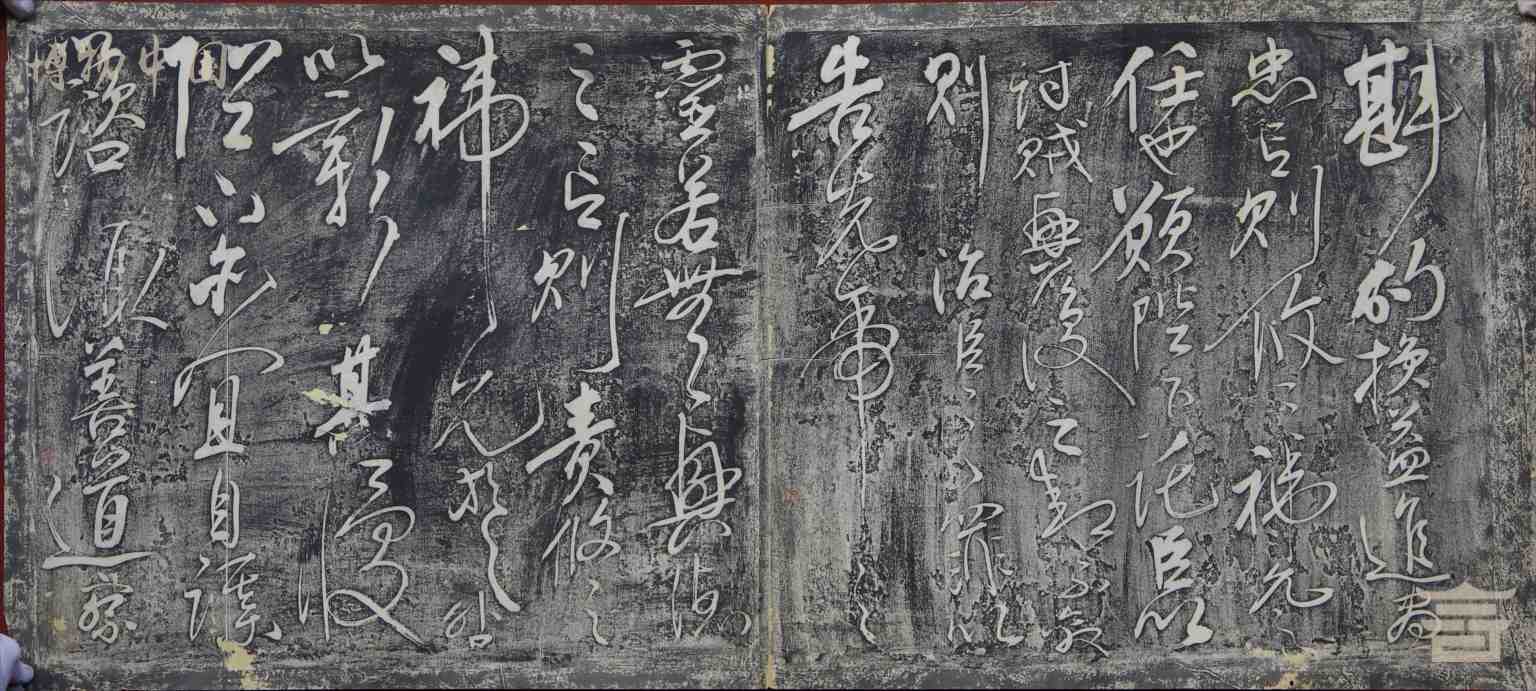 斟酌損益進盡
忠言則攸之禕允之
任也願陛下託臣以
討賊興復之效不效
則治臣之罪以
告先帝之
靈若無興德
之言則責攸之
禕允等咎
以彰其慢
陛下亦宜自謀
以諮諏善道察
博物中国